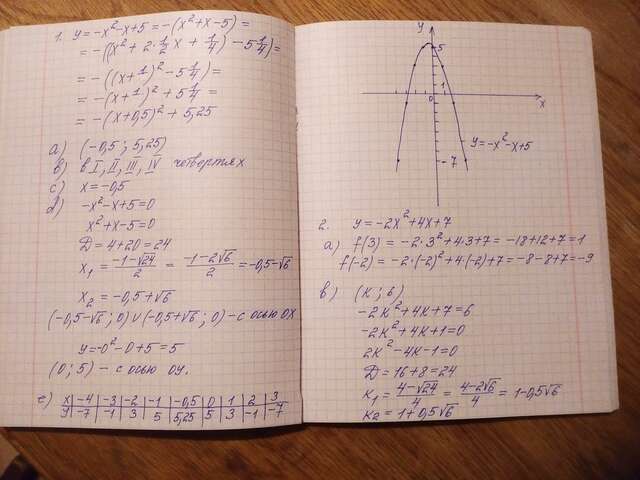 1. y=-x²-x+5=-(x²+x-5)=
=-((x²+2·1/2x+1/4)-5 1/4)=
=-((x+1)²-5 1/4)=
=-(x+1)²+5 1/4=
=-(x+0,5)²+5,25
a) (-0,5; 5,25)
b) в I, II, III, IV четвертях
c) x=-0,5
d) -x²-x+5=0
x²+x-5=0
D=4+20=24
x₁=(-1-√24)/2=(-1-2√6)/2=-0,5-√6
x₂=-0,5+√6
(-0,5-√6; 0)∪(-0,5+√6; 0)-с осью OX
y=-0²-0+5=5
(0; 5) - с осью OY.
e) x -4 -3 -2 -1 -0,5 0 1 2 3
y -7 -1 3 5 5,25 5 3 -1 -7
y
5
1
0
x
y=-x²-x+5
-7
2. y=-2x²+4x+7
a) f(3)=-2·3²+4·3+7=-18+12+7=1
f(-2)=-2·(-2)²+4(-2)+7=-8-8+7=-9
b) (k; 6)
-2k²+4k+7=6
-2k²+4k+1=0
2k²-4k-1=0
D=16+8=24
k₁=(4-√24)/4=(4-2√6)/4=1-0,5√6
k₂=1+0,5√6